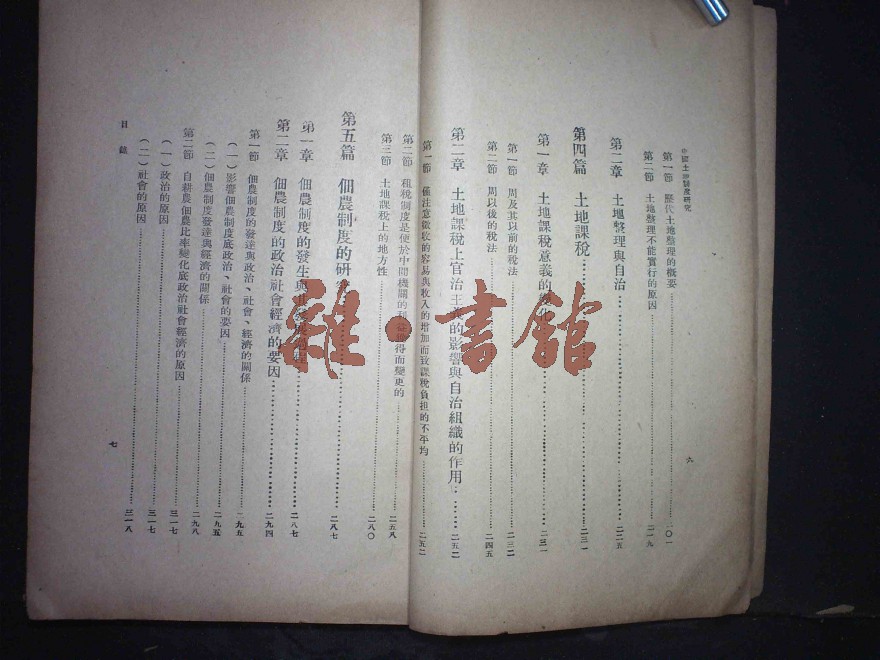 中國土地制度研究
第一節 歷代土地整理的概要……二〇一
第二節 土地整理不能實行的原因……二一九
第二章 土地整理與自治……二二五
第四篇 土地課稅……二三一
第一章 土地課稅意義的……二三一
第一節 周及其以前的稅法……二三二
第二節 周以後的稅法……二四五
第二章 土地課稅上官治主義的影響與自治組織的作用……二五二
第一節 僅注意徵收的容易與收入的增加而致課稅負担的不平均……二五二
六
第二節 租稅制度是便於中間機關的利益獲得而變更的……二五八
第三節 土地課稅上的地方性……二八〇
第五篇 佃農制度的研……二八七
第一章 佃農制度的發生與其發展……二八七
第二章 佃農制度的政治社會經濟的要因……二九四
第一節 佃農制度的發達與政治、社會、經濟的關係……二九五
(一)影響佃農制度底政治、社會的要因……二九五
(二)佃農制度發達與經濟的關係……二九八
第二節 自耕農佃農比率變化底政治社會經濟的原因……三一七
(一)政治的原因……三一七
(二)社會的原因……三一八
目錄
七
雜·書館